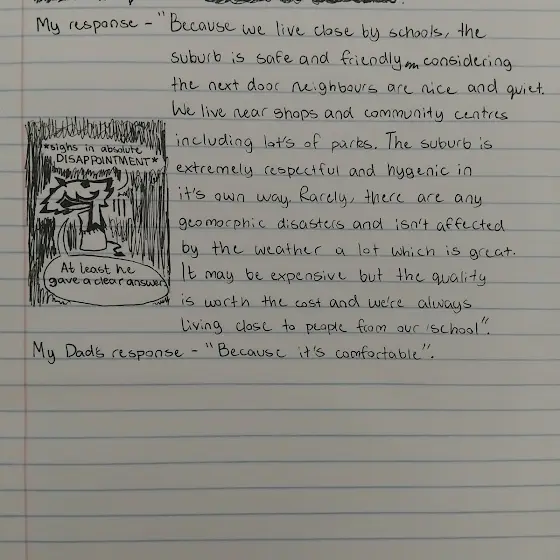 My response - "Because we live close by schools, the
suburb is safe and friendly, considering
the next door neighbours are nice and quiet.
We live near shops and community centres
including lot's of parks. The suburb is
extremely respectful and hygenic in
it's own way. Rarely, there are any
geomorphic disasters and isn't affected
by the weather a lot which is great.
It may be expensive but the quality
is worth the cost and we're always
living close to people from our school".
*sighs in absolute
DISAPPOINTMENT*
At least he
gave a clear answer
My Dad's response - "Because it's comfortable".